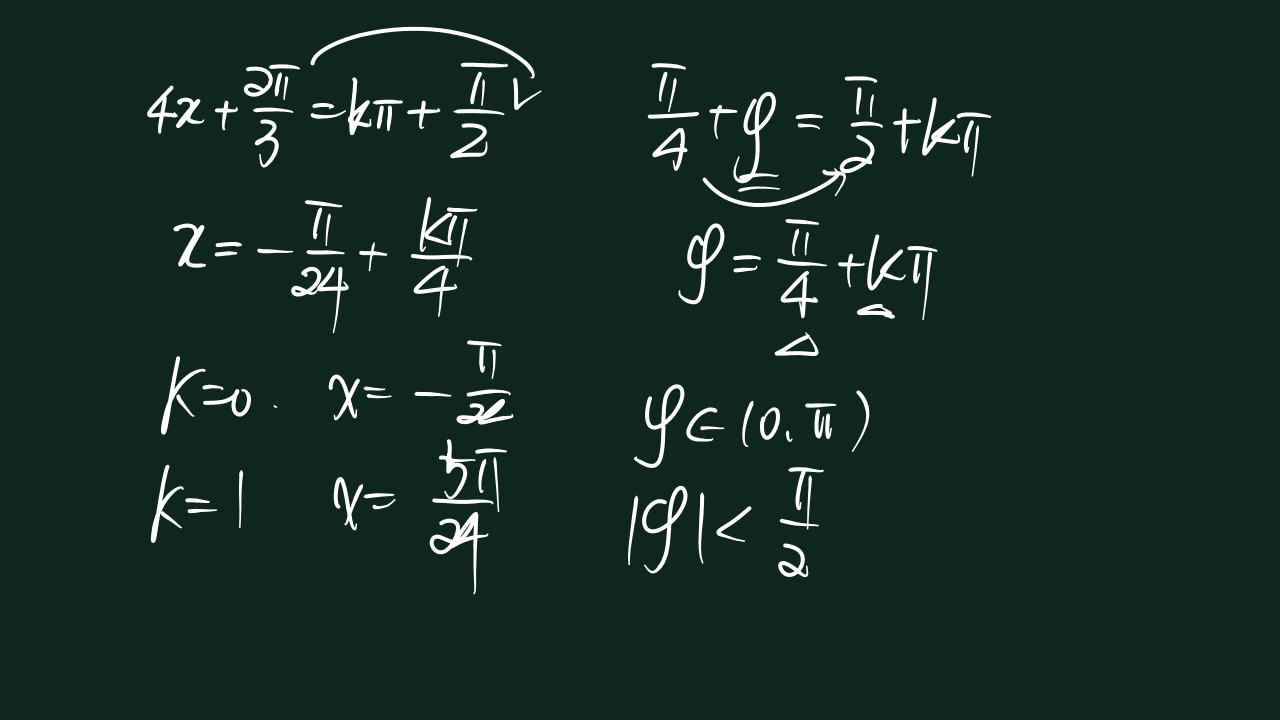 4x + 2π/3 = kπ + π/2
x = -π/24 + kπ/4
k=0. x = -π/24
k=1 x = 5π/24
π/4 + φ = π/2 + kπ
φ = π/4 + kπ
φ ∈ (0, π)
|φ| < π/2